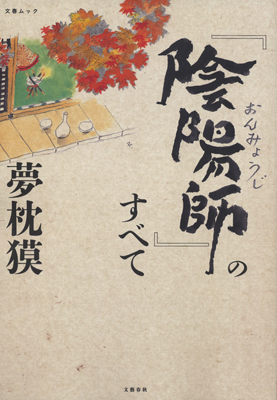 文春ムック
『陰陽師』の
おんみょうじ
すべて
夢枕獏
文藝春秋